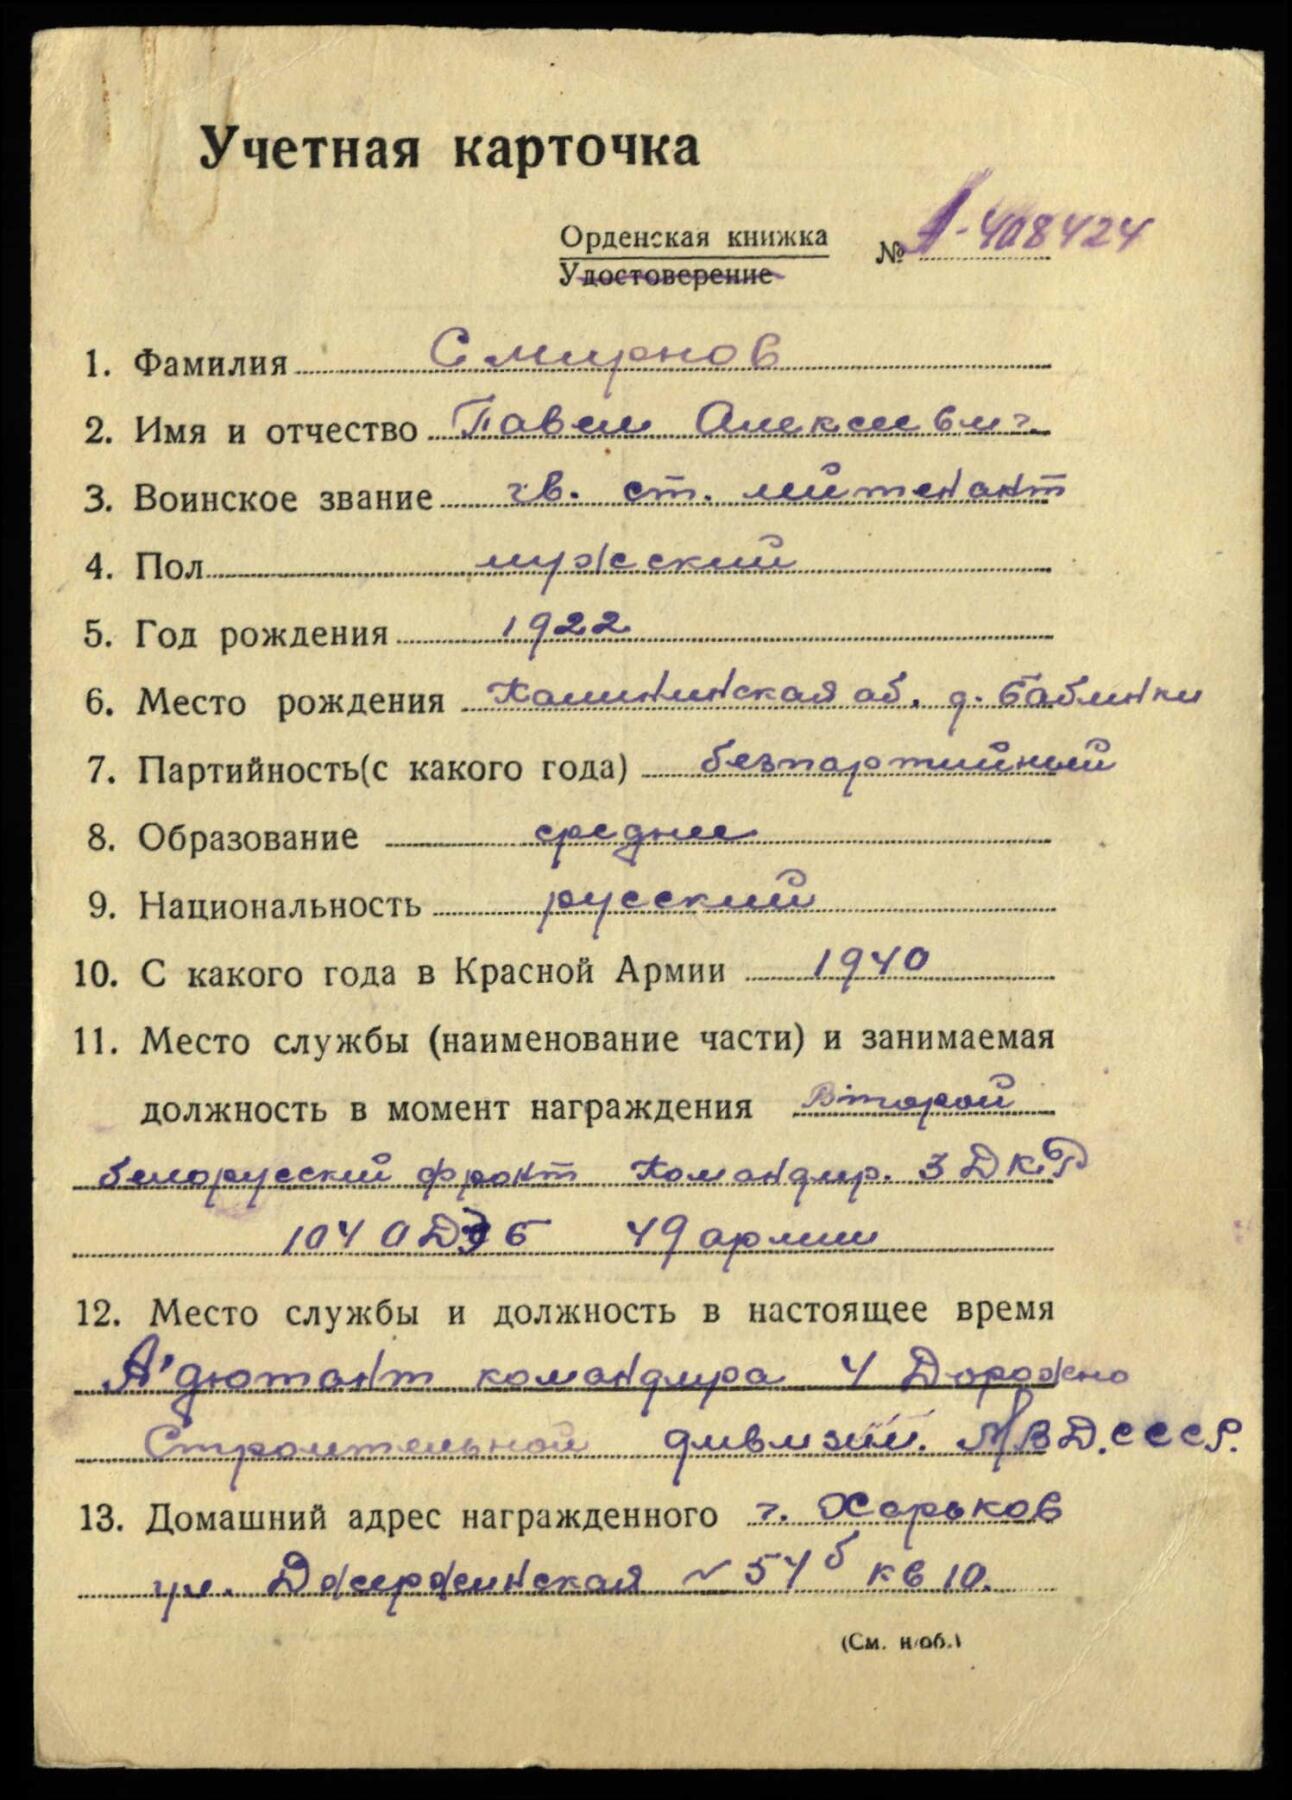 Учетная карточка
Орденская книжка № А-408424
Удостоверение
1. Фамилия Смирнов
2. Имя и отчество Павел Алексеевич
3. Воинское звание гв. ст. лейтенант
4. Пол мужский
5. Год рождения 1922
6. Место рождения Калининская об. д. Баблинки
7. Партийность(с какого года) безпартийный
8. Образование среднее
9. Национальность русский
10. С какого года в Красной Армии 1940
11. Место службы (наименование части) и занимаемая
должность в момент награждения Второй
белорусский фронт Командир. 3
104 ОДЭБ 49 армии
12. Место службы и должность в настоящее время
Адютант командира 4 Дорожно
Строительной дивизии. МВД.СССР.
13. Домашний адрес награжденного г. Харьков
ул. Дзержинская 54б кв 10.
(См. н/об.)